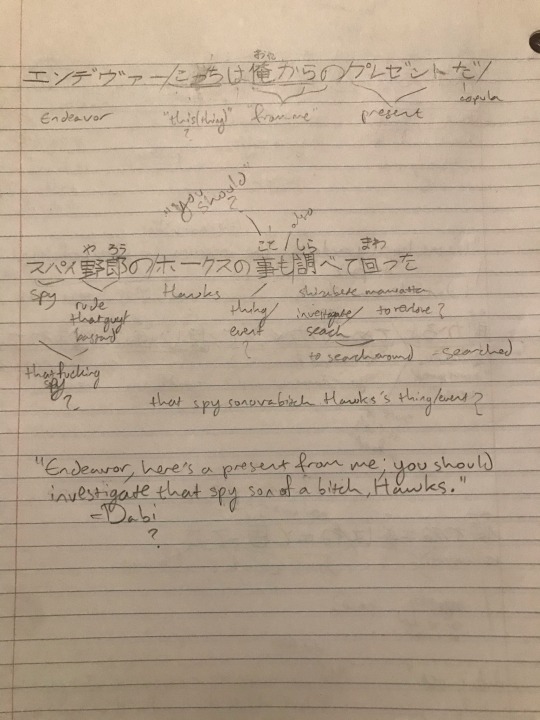 おれ
エンデヴァー/こっちは俺からの/プレゼントだ/
Endeavor "this(thing)" "from me" present copula
?
"you should"
?
also
や ろう こと / しら まわ
スパイ野郎の/ホークスの事も調べて回った
spy rude that guy/ bastard Hawks thing/ event investigate/ search to revolve?
?
to search around = searched
that fucking spy
?
that spy sonovabitch Hawks's thing/event?
"Endeavor, here's a present from me; you should
investigate that spy son of a bitch, Hawks."
-Dabi
?